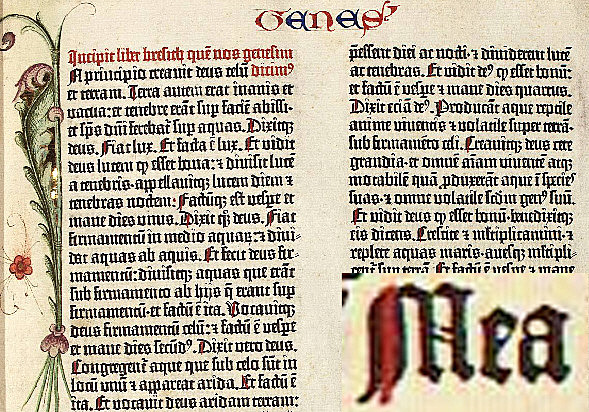 Genes'
Incipit liber bresith quē nos genesim
N principio creauit deus celū dicim⁹
et terram. Terra autem erat inanis et
vacua: et tenebre erāt sup faciē abissi·
et sp̄s dñi ferebat̄ sup aquas. Dixitq;
deus. Fiat lux. Et facta ē lux. Et vidit
deus lucem q̄ esset bona: ⁊ diuisit lucē
a tenebris·appellauitq; lucem diem ⁊
tenebras noctem: Factūq; est vespe et
mane dies vnus. Dixit q̄ʒ deus. Fiat
firmamentū in medio aquaꝝ: ⁊ diui-
dat aquas ab aquis. Et fecit deus fir-
mamentū: diuisitq; aquas que erāt
sub firmamento ab hijs q̄ erant sup
firmamentū: et factū ē ita. Vocauitq;
deus firmamentū celū: ⁊ factū ē vespe
et mane dies secūd⁹. Dixit vero deus.
Congregent̄ aque que sub celo sūt in
locū vnū ⁊ appareat arida. Et factū ē
ita. Et vocauit deus aridam terram:
p̄essent diei ac nocti: ⁊ diuiderent lucē
ac tenebras. Et vidit de⁹ q̄ esset bonū:
et factū ē vespe ⁊ mane dies quartus.
Dixit eciā de⁹. Producāt aque reptile
anime viuentis ⁊ volatile super terrā·
sub firmamēto celi. Creauitq; deus cete
grandia·et omnē aīam viuentē atq;
motabilē quā pduxerāt aque ī spēcies
suas·⁊ omne volatile scdm gen⁹ suū.
Et vidit deus q̄ esset bonū·benedixitq;
eis dicens. Crescite ⁊ multiplicamini·⁊
replete aquas maris·auesq; multipli-
cent̄ sup terrā. Et factū ē vespe ⁊ mane
Mea